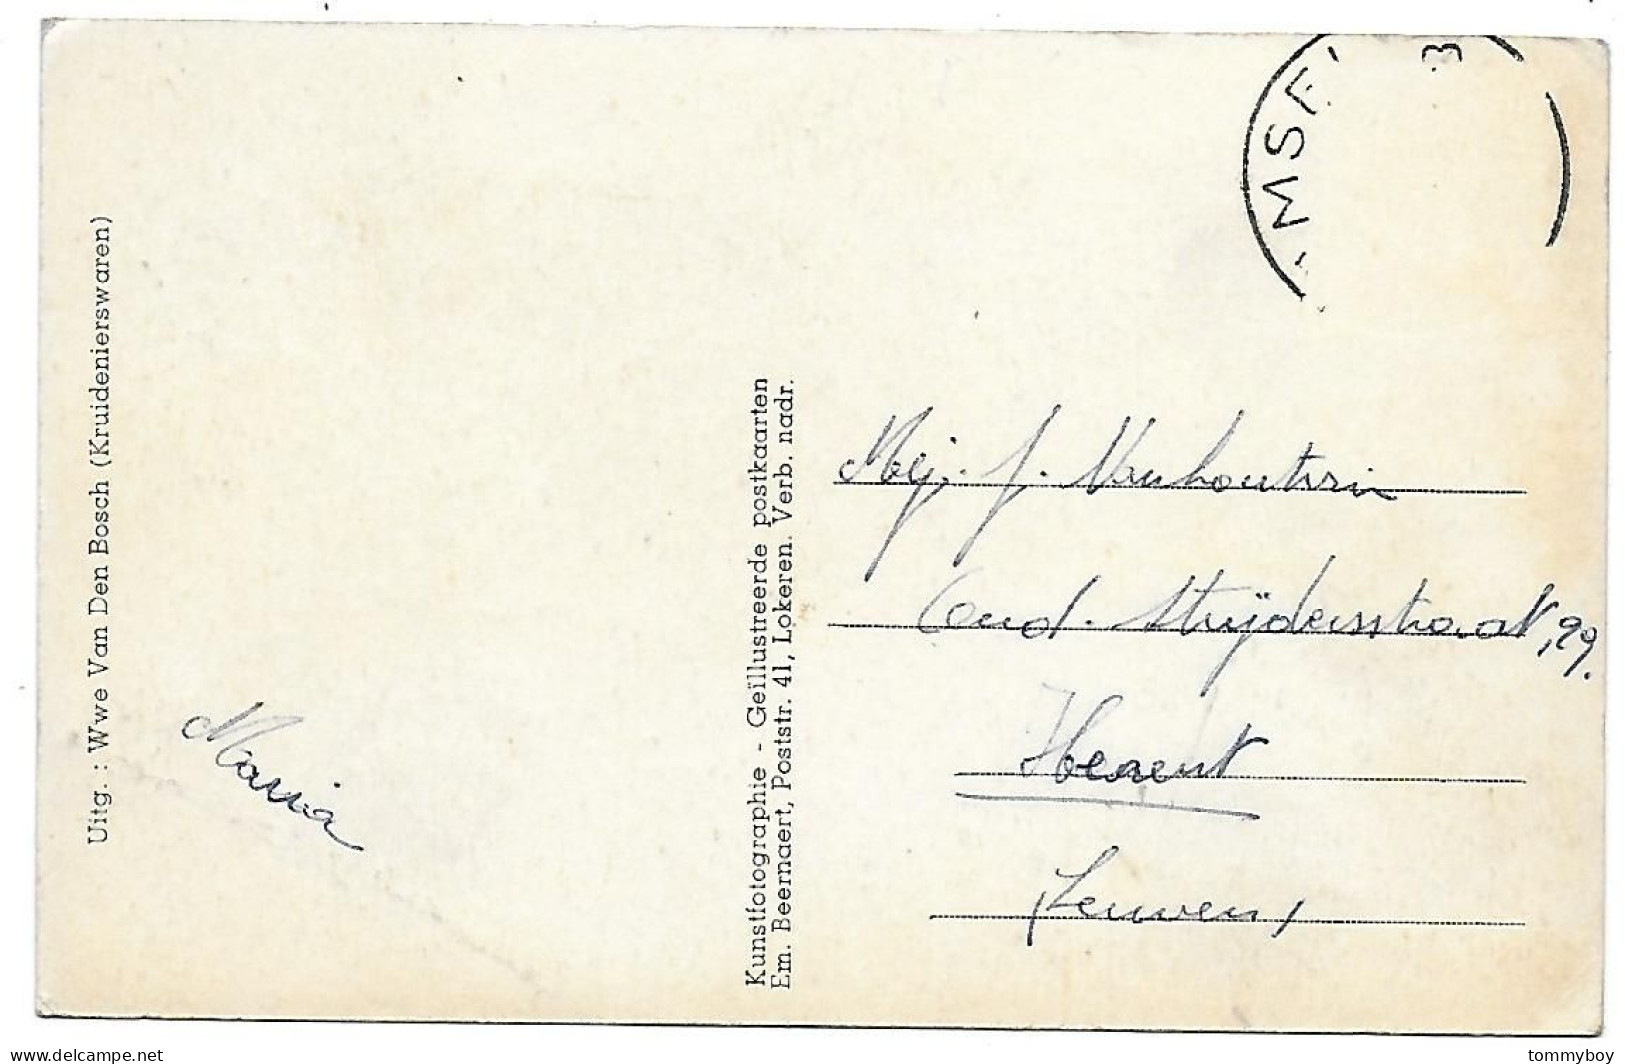 Uitg. : Wwe Van Den Bosch (Kruidenierswaren)
Maria
Kunstfotographie - Geïllustreerde postkaarten
Em. Beernaert, Poststr. 41, Lokeren. Verb. nadr.
AMSE
3
Mej. J. Vanhoutvin
Oud. Strijdersstraat, 29.
Herent
(Leuven)
delcampe.net
tommyboy